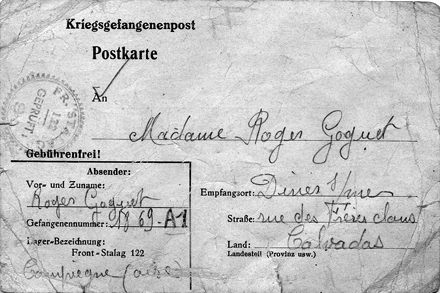 Kriegsgefangenenpost
Postkarte
FR. STALAG
122
GEPRÜFT
An
Madame Roger Goguet
Gebührenfrei!
Absender:
Vor- und Zuname:
Roger Goguet
Gefangenennummer: 69-A1
Lager-Bezeichnung:
Front-Stalag 122
Compiegne (oise)
Empfangsort: Dives s/mer
Straße: rue des Frères
Land: Calvados
Landesteil (Provinz usw.)